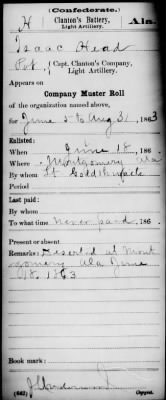 (Confederate.)
H Clanton's Battery, Ala.
Light Artillery.
Isaac Head
Pvt, Capt. Clanton's Company,
Light Artillery.
Appears on
Company Muster Roll
of the organization named above,
for June 5 to Aug 31, 1863
Enlisted:
When June 18, 186
Where Montgomery Ala
By whom Lt Goldthwaite
Period
Last paid:
By whom
To what time never paid, 186
Present or absent
Remarks: Deserted at Mont
gomery Ala June
1863
Book mark:
(642) Copyist.